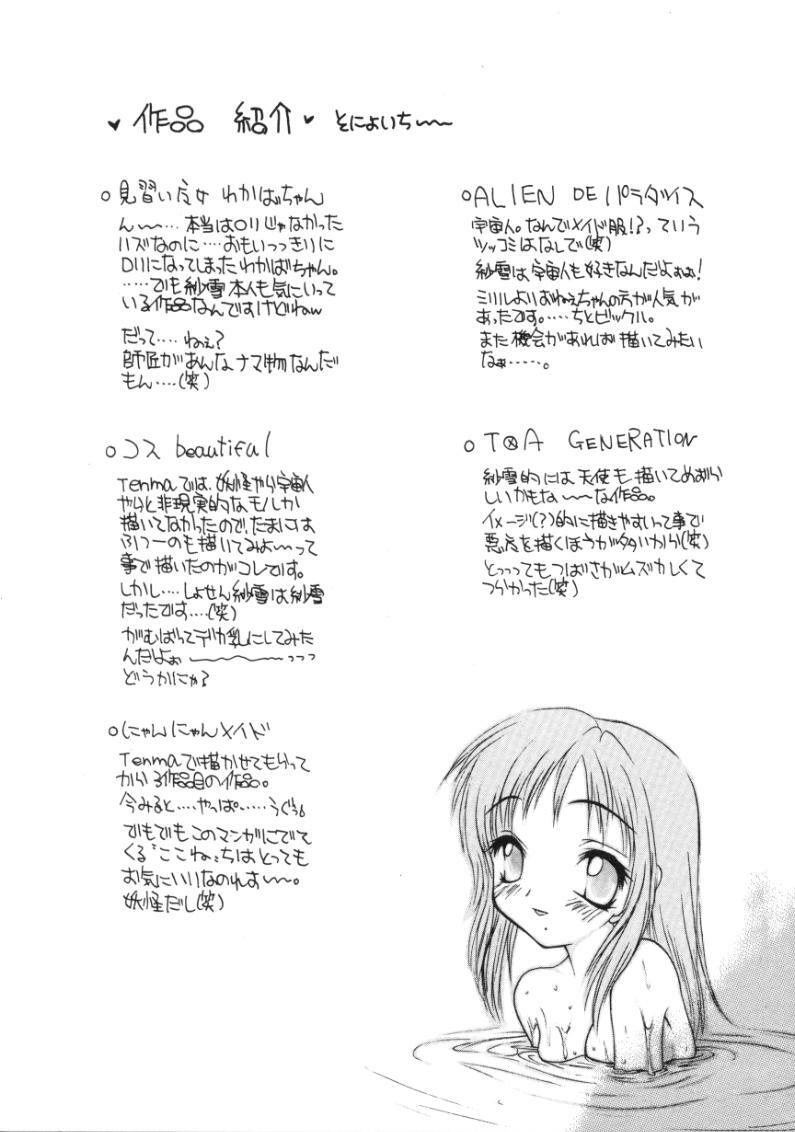 ♥ 作品 紹介 ♥ そにょいち〜〜
○見習い天女 わかばちゃん
ん〜…‥本当はロリじゃなかった
ハズなのに‥‥おもいっっきりに
ロリになってしまったわかばちゃん。
‥‥‥でも紗雪本人も気にいって
いる作品なんですけどねw
だって‥‥ねぇ?
師匠があんなナマ物なんだ
もん‥‥(笑)
○コス beautiful
Tenmaでは、妖怪やら宇宙人
やらと非現実的なモノしか
描いてなかったので、たまには
ふつーのも描いてみよ〜って
事で描いたのがコレです。
しかし‥‥しょせん紗雪は紗雪
だったです‥‥(笑)
がむばってデカ乳にしてみた
んだよぉ 〜〜〜っっっ
どうかにゃ?
○にゃんにゃんメイド
Tenmaで描かせてもらって
から 作品目の作品。
今みると‥‥やっぱ‥‥‥うぐぅ。
でもでもこのマンガにでて
くる"ここね"ちはとっても
お気にいいなのれす〜〜。
妖怪だし(笑)
○ALIEN DE パラダイス
宇宙人。なんでメイド服!?っていう
ツッコミはなしで(笑)
紗雪は宇宙人も好きなんだよぉぉ!
ミルルよりおねぇちゃんの方が人気が
あったです。‥‥‥ちとビックル。
また機会があれば描いてみたい
なぁ‥‥‥。
○ T⊗A GENERATION
紗雪的には天使も描いてめずら
しいかもな〜〜な作品。
イメージ(?)的に描きやすいって事で
悪魔を描くほうが多いから(笑)
とっっってもつばさがムズカしくて
つらかった(笑)